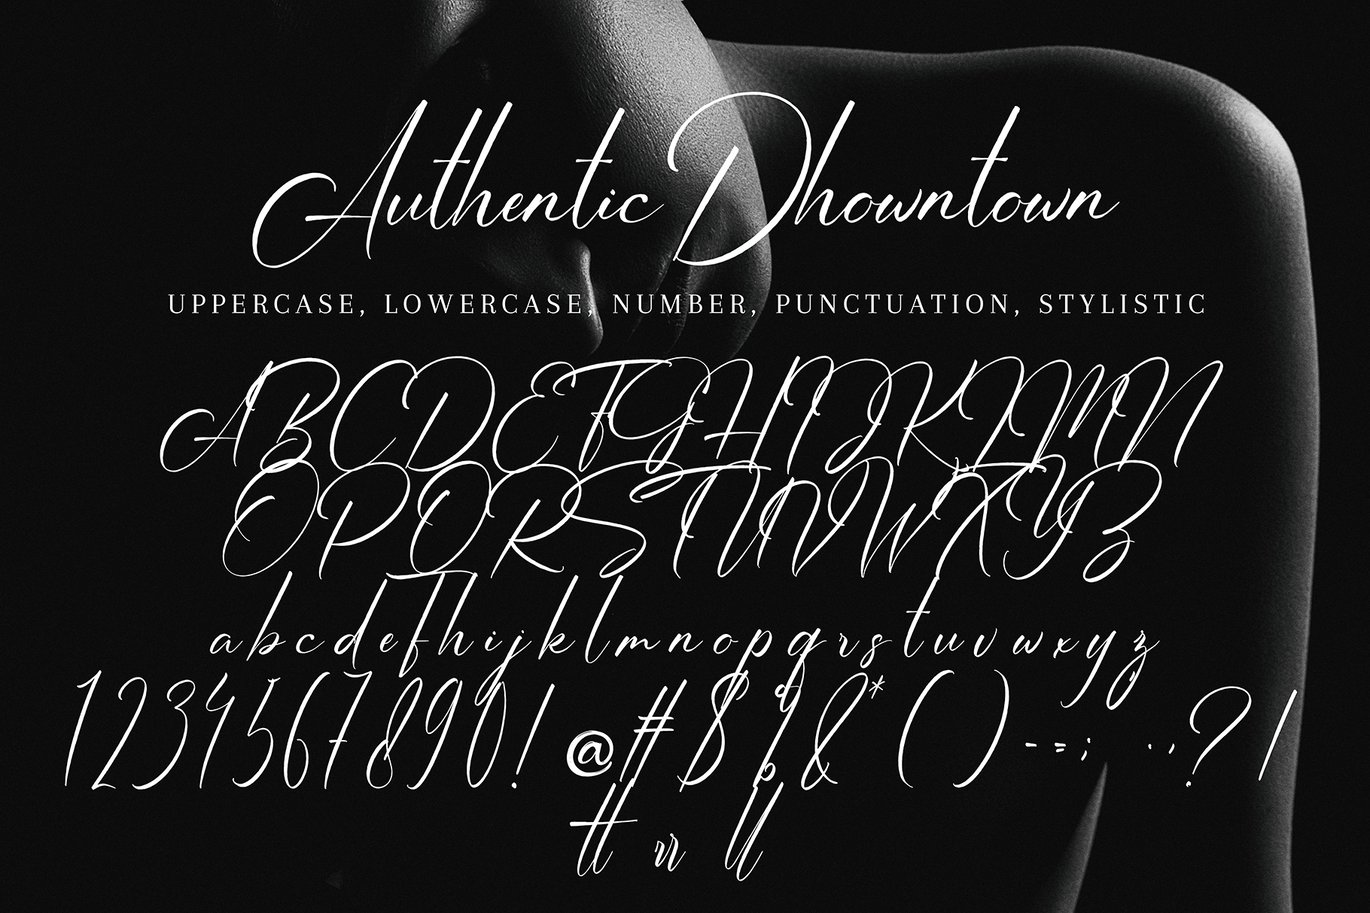 Authentic Dhowntown
UPPERCASE, LOWERCASE, NUMBER, PUNCTUATION, STYLISTIC
ABCDEFGHIJKLMN
OPQRSTUVWXYZ
abcdefhijklmnopqrstuvwxyz
1234567890!@#$%&*()-=;.,?/
tt rr ll